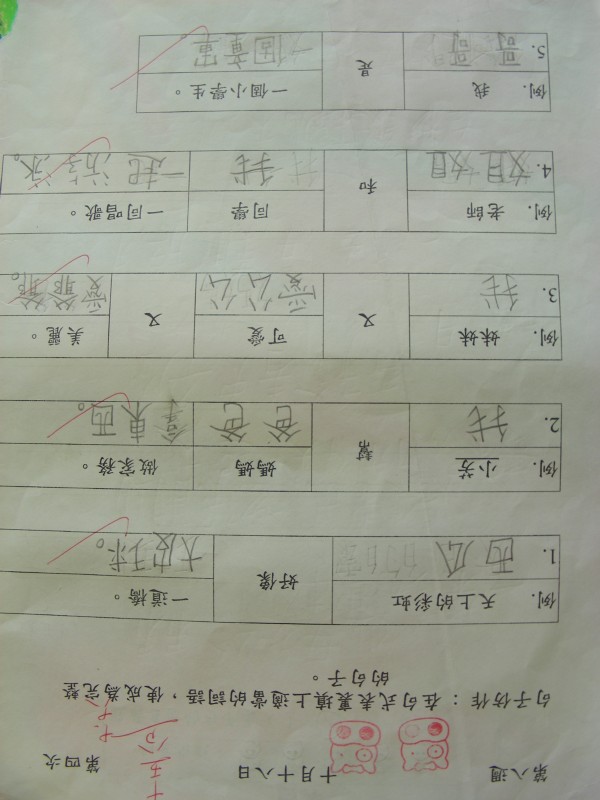 第八週 十月十八日 第四次
句子仿作：在句式表裏填上適當的詞語，使成為完整
的句子。
例. 天上的彩虹 好像 一道橋。
1. 西瓜 大皮球。
例. 小芳 幫 媽媽 做家務。
2. 我 爸爸 拿東西。
例. 妹妹 又 可愛 又 美麗。
3. 我 愛公公 愛爺爺。
例. 老師 和 同學 一同唱歌。
4. 姐姐 我 一起游泳。
例. 我 是 一個小學生。
5. 哥哥 一個童軍。